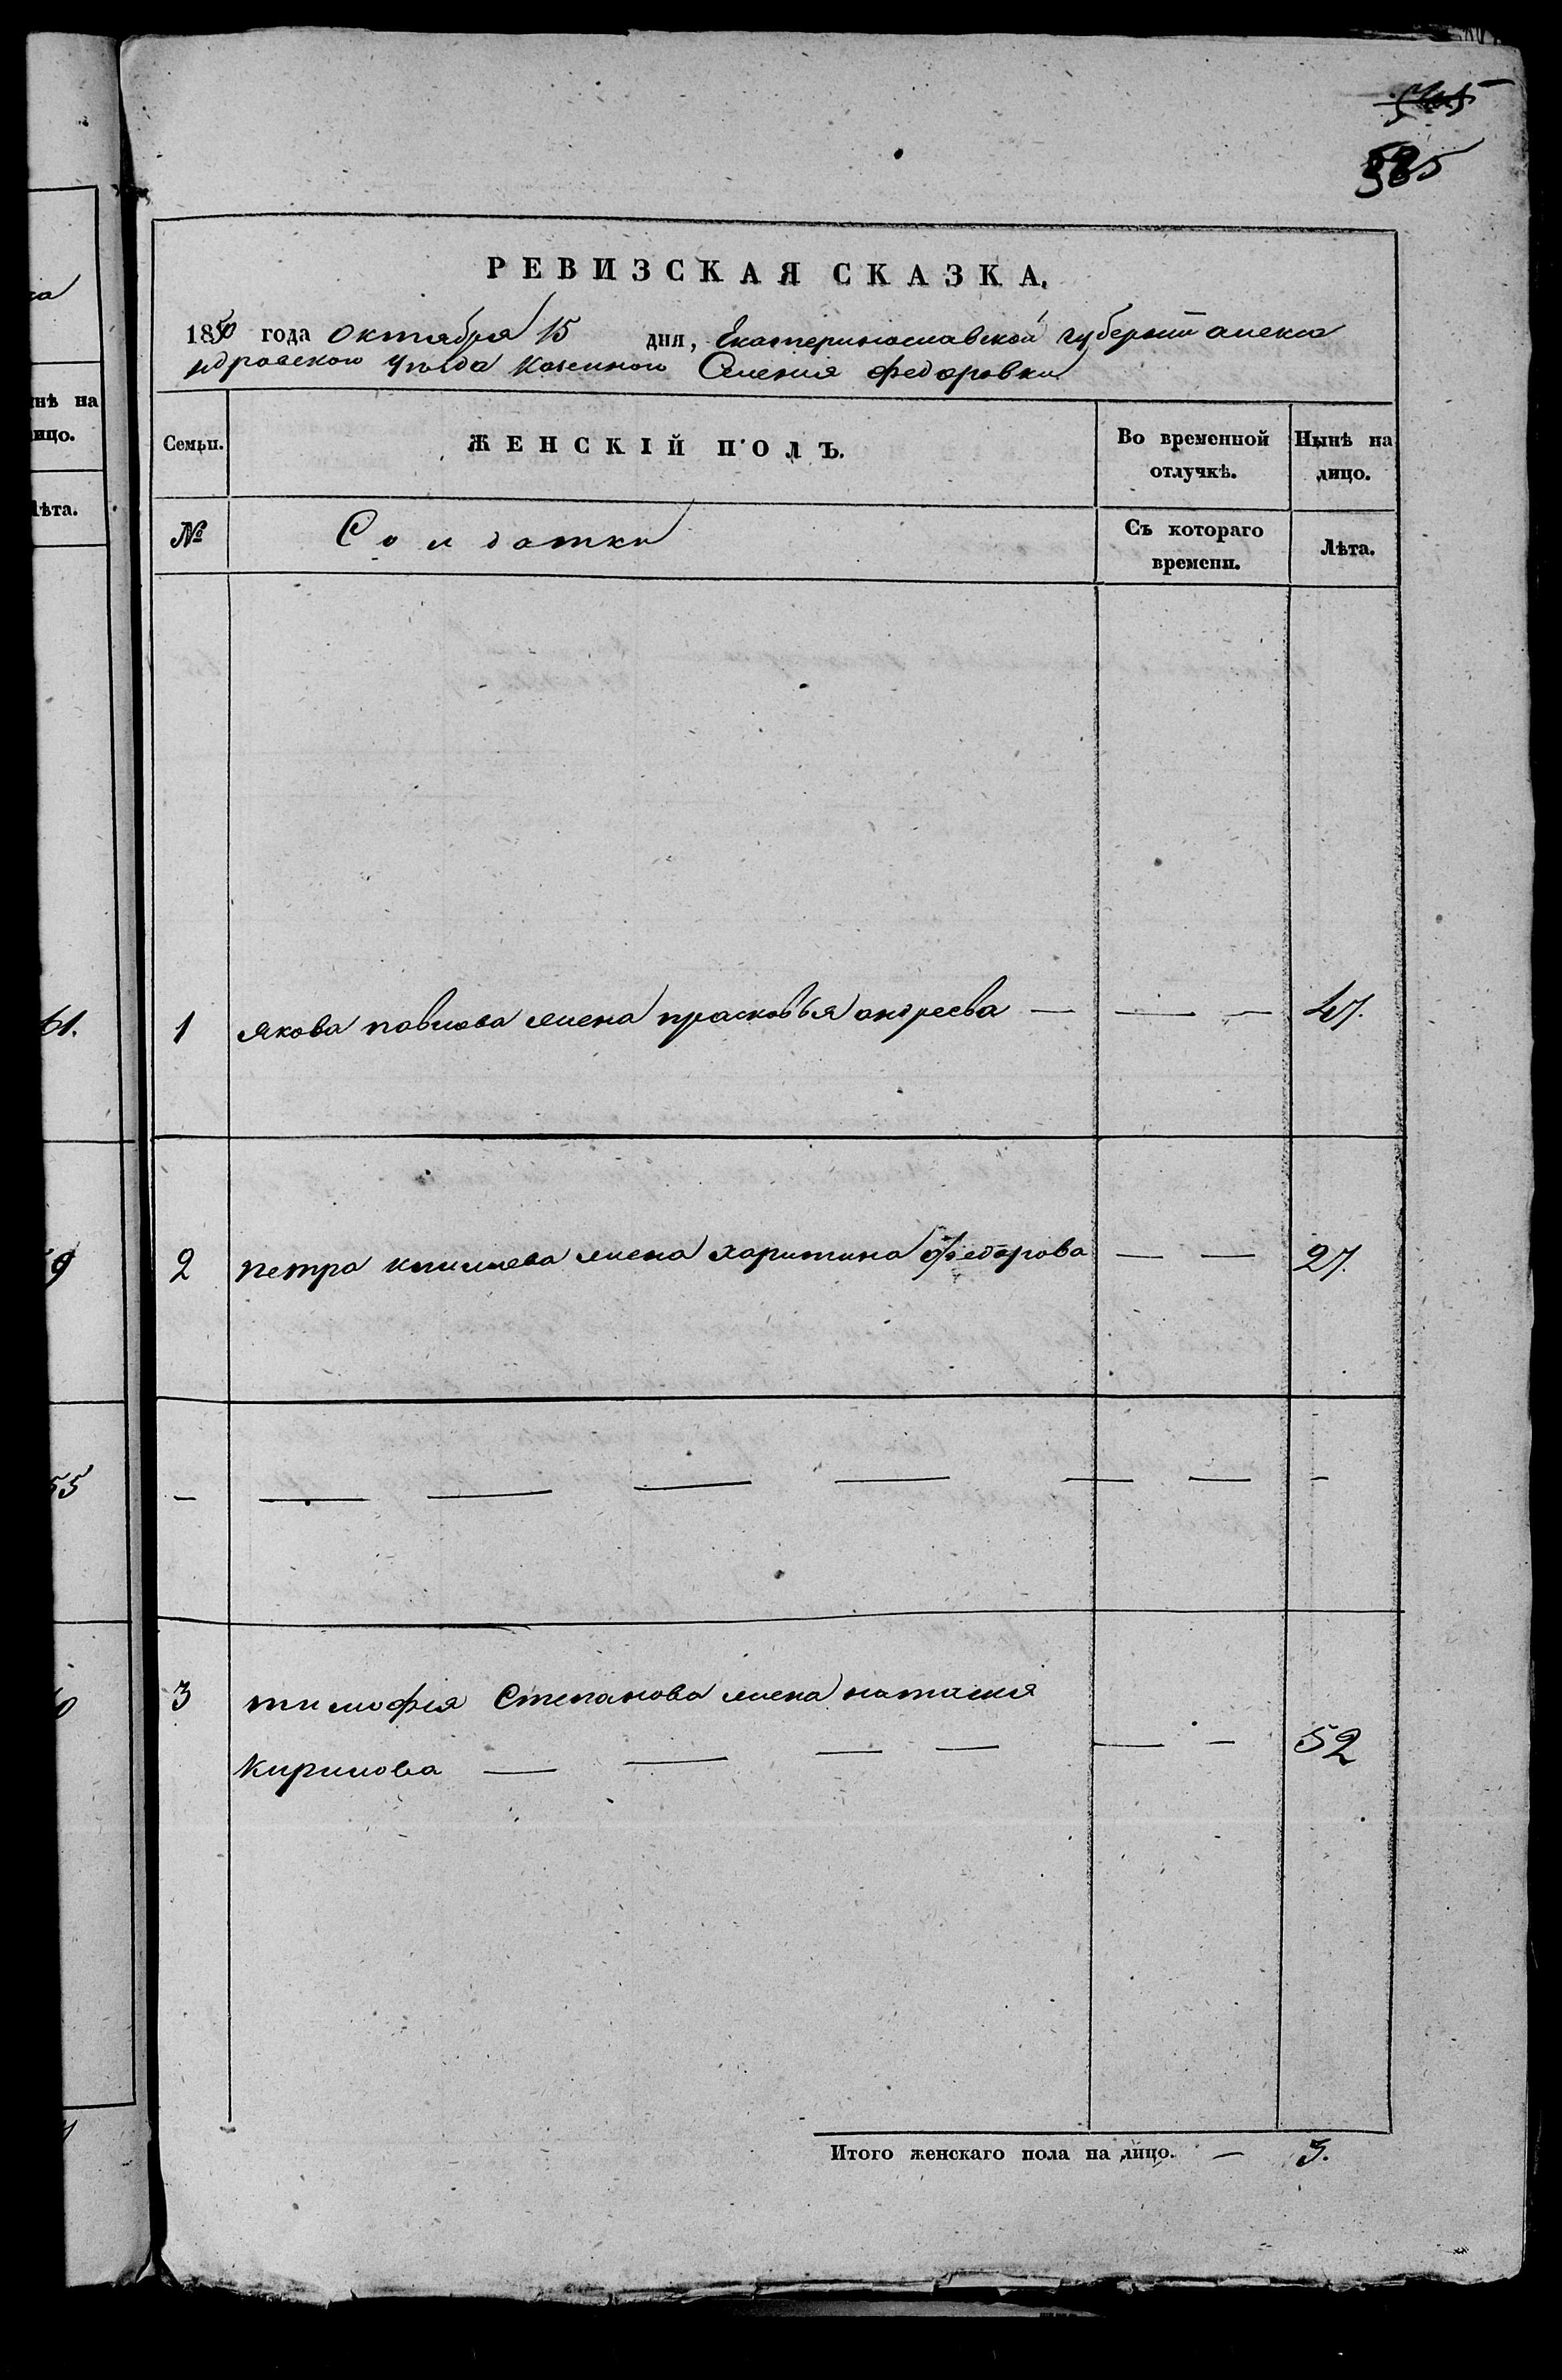 585
РЕВИЗСКАЯ СКАЗКА.
1850 года Октября 15 дня, Екатеринославской губернии алекса
ндровского уѣзда казенного Селения федоровки
Семьи.
ЖЕНСКІЙ ПОЛЪ.
Во временной отлучкѣ.
Нынѣ на лицо.
№
Солдатки
Съ котораго времени.
Лѣта.
1 якова павлова жена прасковья андреева — — — 47.
2 петра климова жена харитина федорова — — 27.
— — — — — — — —
3 тимофія Степанова жена наталия
Кирилова — — — — — — 52
Итого женскаго пола на лицо. — 3.
нѣ на
лицо.
Лѣта.
61.
59
55